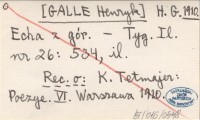 [GALLE Henryk] H. G. 1910.
Echa z gór. — Tyg. Il.
nr 26: 534, il.
Rec. o: K. Tetmajer:
Poezye. VI. Warszawa 1910.